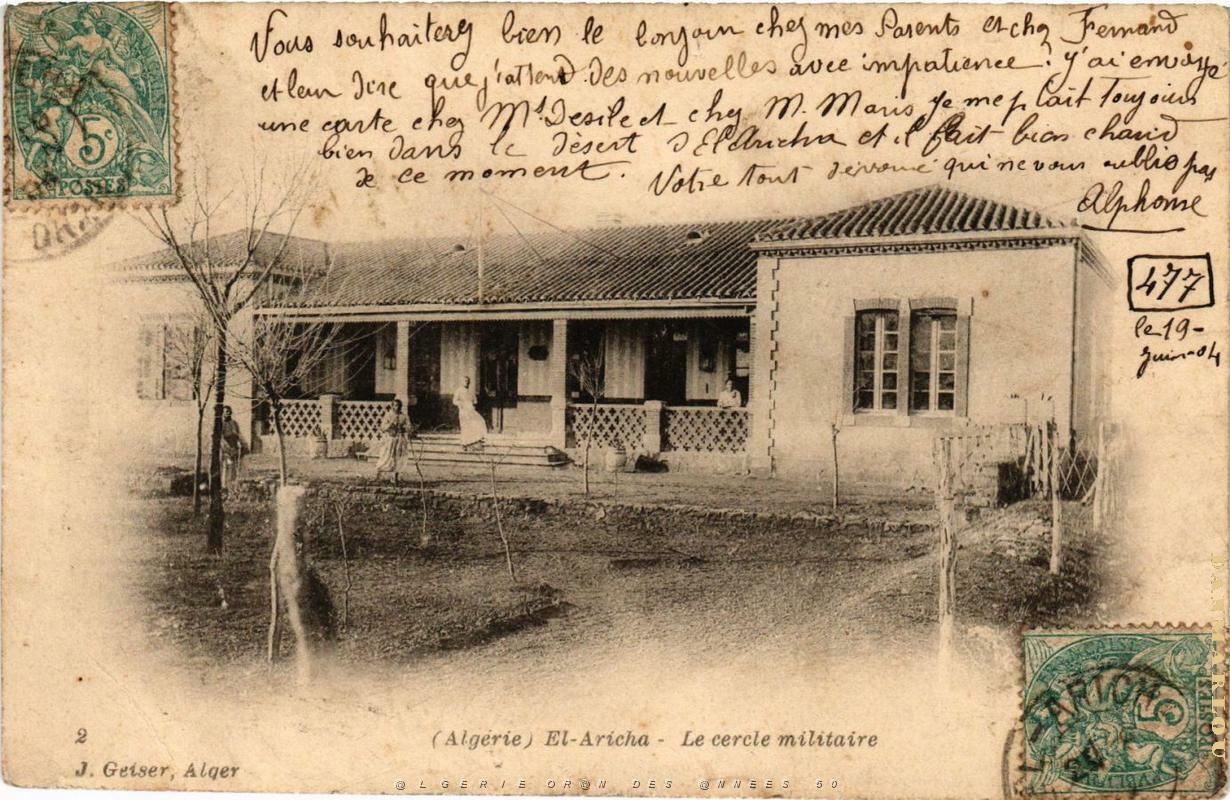 Vous souhaiterez bien le bonjour chez mes Parents et chez Fernand
et leur dire que j'attend des nouvelles avec impatience. j'ai envoyé
une carte chez Mr Desile et chez M. Maris je me plait toujours
bien dans le désert d'El Aricha et il fait bien chaud
de ce moment. Votre tout dévoué qui ne vous oublie pas
Alphonse
477
le 19-
Juin-04
5c
POSTES
ORAN
2
(Algérie) El-Aricha - Le cercle militaire
J. Geiser, Alger
EL-ARICHA
5c
POSTES
@LGERIE OR@N DES @NNEES 50
DELCAMPE